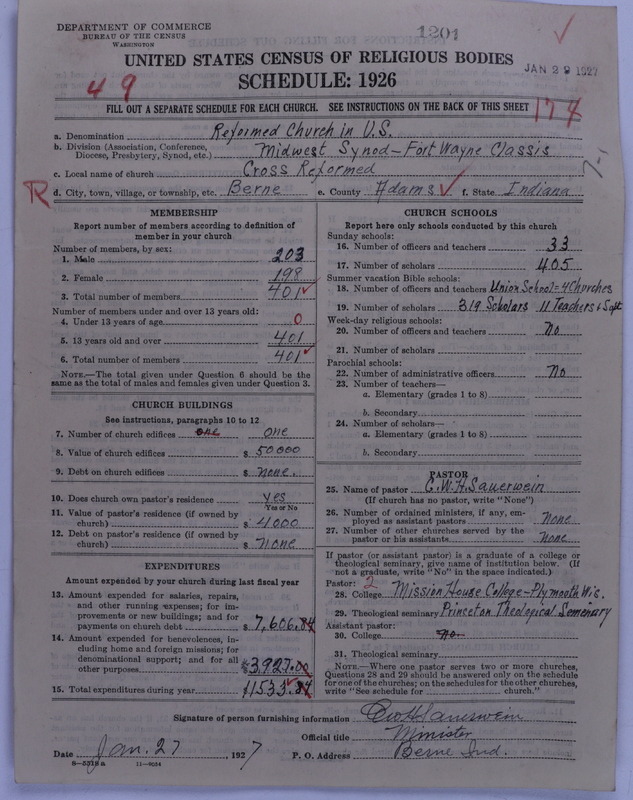 DEPARTMENT OF COMMERCE
BUREAU OF THE CENSUS
WASHINGTON
1201
UNITED STATES CENSUS OF RELIGIOUS BODIES
JAN 29 1927
SCHEDULE: 1926
49
FILL OUT A SEPARATE SCHEDULE FOR EACH CHURCH. SEE INSTRUCTIONS ON THE BACK OF THIS SHEET
178
a. Denomination Reformed Church in U.S.
b. Division (Association, Conference, Diocese, Presbytery, Synod, etc.) Midwest Synod - Fort Wayne Classis
c. Local name of church Cross Reformed
7-1
R d. City, town, village, or township, etc. Berne e. County Adams f. State Indiana
MEMBERSHIP
Report number of members according to definition of member in your church
Number of members, by sex:
1. Male 203
2. Female 198
3. Total number of members 401
Number of members under and over 13 years old:
4. Under 13 years of age 0
5. 13 years old and over 401
6. Total number of members 401
NOTE.—The total given under Question 6 should be the same as the total of males and females given under Question 3.
CHURCH BUILDINGS
See instructions, paragraphs 10 to 12
7. Number of church edifices one one
8. Value of church edifices $ 50000
9. Debt on church edifices $ none.
10. Does church own pastor's residence yes
Yes or No
11. Value of pastor's residence (if owned by church) $ 4000
12. Debt on pastor's residence (if owned by church) $ none
EXPENDITURES
Amount expended by your church during last fiscal year
13. Amount expended for salaries, repairs, and other running expenses; for improvements or new buildings; and for payments on church debt $ 7,606.84
14. Amount expended for benevolences, including home and foreign missions; for denominational support; and for all other purposes $3,927.00
15. Total expenditures during year $11533.84
CHURCH SCHOOLS
Report here only schools conducted by this church
Sunday schools:
16. Number of officers and teachers 33
17. Number of scholars 405
Summer vacation Bible schools:
18. Number of officers and teachers Union School = 4 Churches
19. Number of scholars 319 Scholars 11 Teachers & Supt
Week-day religious schools:
20. Number of officers and teachers No
21. Number of scholars
Parochial schools:
22. Number of administrative officers No
23. Number of teachers—
a. Elementary (grades 1 to 8)
b. Secondary
24. Number of scholars—
a. Elementary (grades 1 to 8)
b. Secondary
PASTOR
25. Name of pastor G.W.H. Sauerwein
(If church has no pastor, write "None")
26. Number of ordained ministers, if any, employed as assistant pastors None
27. Number of other churches served by the pastor or his assistants None
If pastor (or assistant pastor) is a graduate of a college or theological seminary, give name of institution below. (If not a graduate, write "No" in the space indicated.)
Pastor: 2
28. College Mission House College - Plymouth Wis.
29. Theological seminary Princeton Theological Seminary
Assistant pastor:
30. College No
31. Theological seminary
NOTE.—Where one pastor serves two or more churches, Questions 28 and 29 should be answered only on the schedule for one of the churches; on the schedules for the other churches, write "See schedule for church."
Signature of person furnishing information Geo H Sauerwein
Official title Minister
Date Jan. 27 1927 P. O. Address Berne Ind.
8—5318 a 11—9034